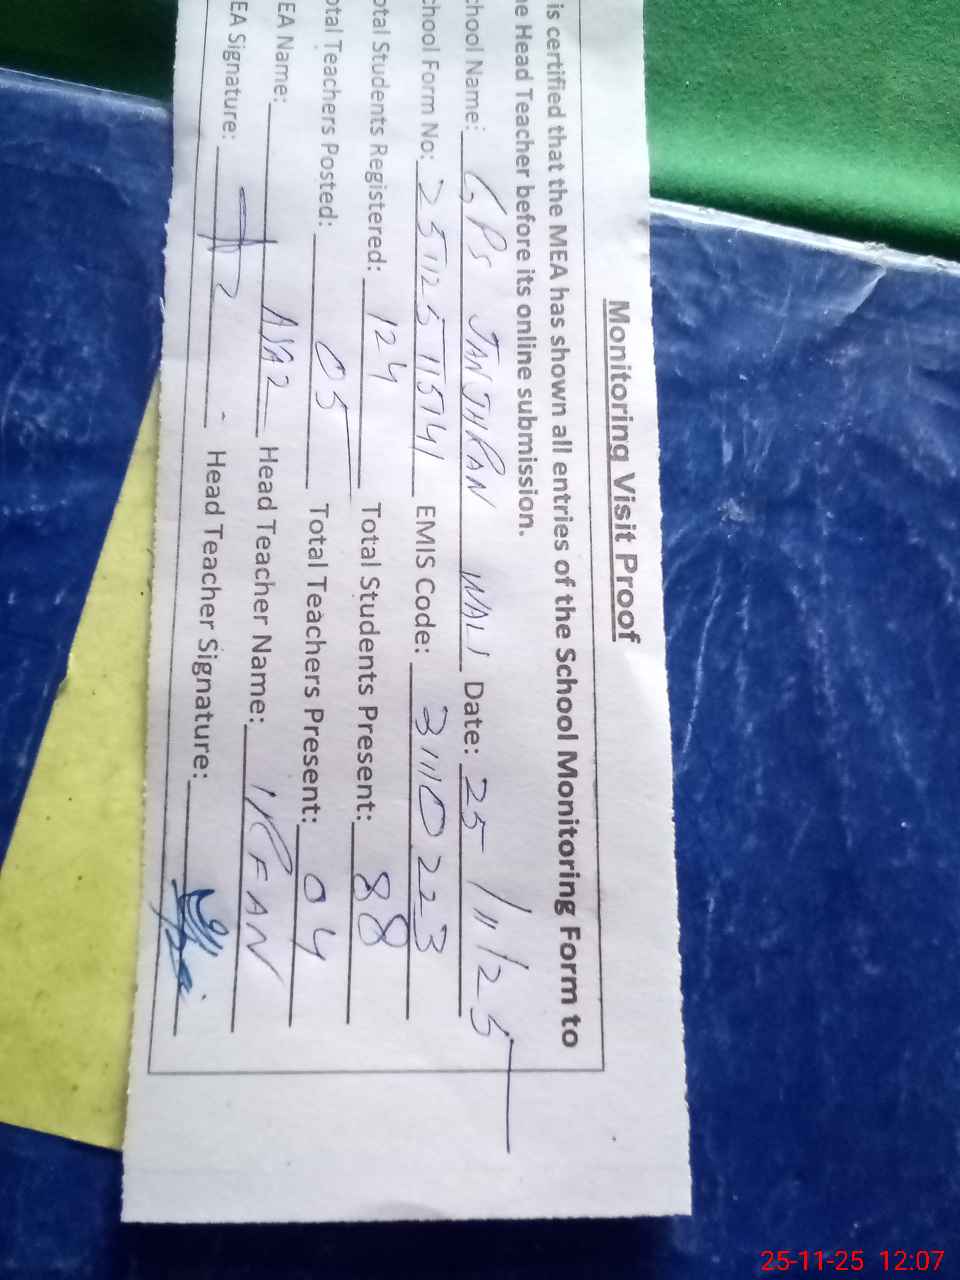 Monitoring Visit Proof
is certified that the MEA has shown all entries of the School Monitoring Form to
he Head Teacher before its online submission.
chool Name: GPS JANJHRAN WALI Date: 25/11/25
chool Form No: 251125115141 EMIS Code: 31110223
otal Students Registered: 124 Total Students Present: 88
otal Teachers Posted: 05 Total Teachers Present: 04
EA Name: Head Teacher Name: IRFAN
EA Signature: Head Teacher Signature:
25-11-25 12:07